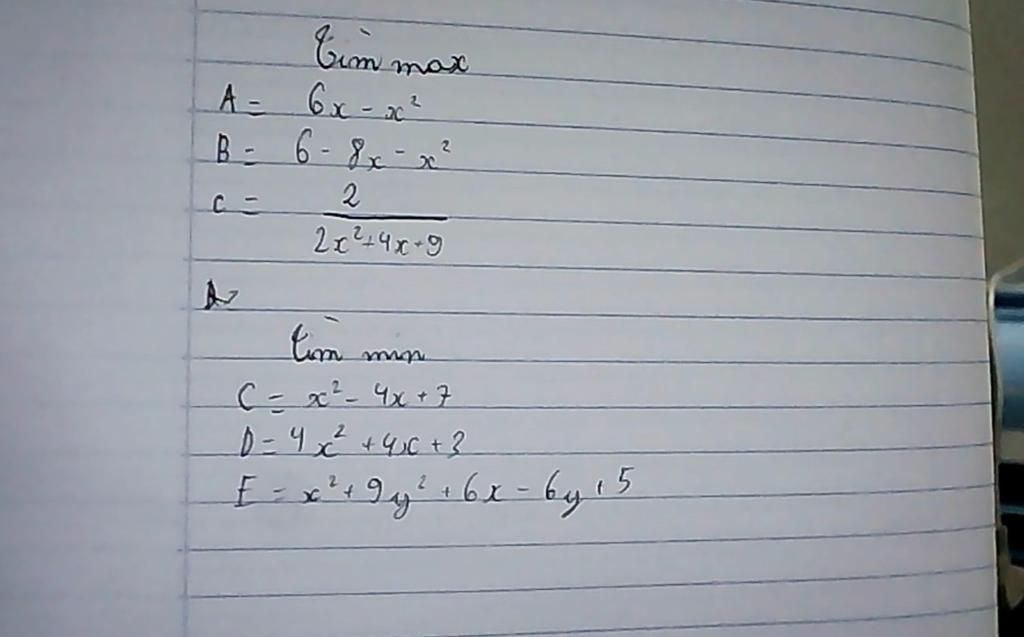 tìm max
A = 6x - x²
B = 6 - 8x - x²
C = 2
2x²+4x+9
tìm min
C = x² - 4x + 7
D = 4x² + 4x + 3
E = x² + 9y² + 6x - 6y + 5